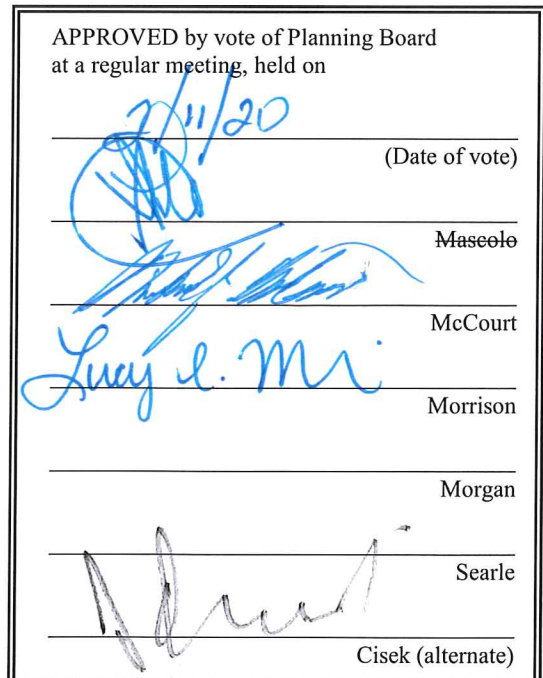 APPROVED by vote of Planning Board
at a regular meeting, held on
2/11/20
(Date of vote)
Mascolo
McCourt
Lucy
Morrison
Morgan
Searle
Cisek (alternate)